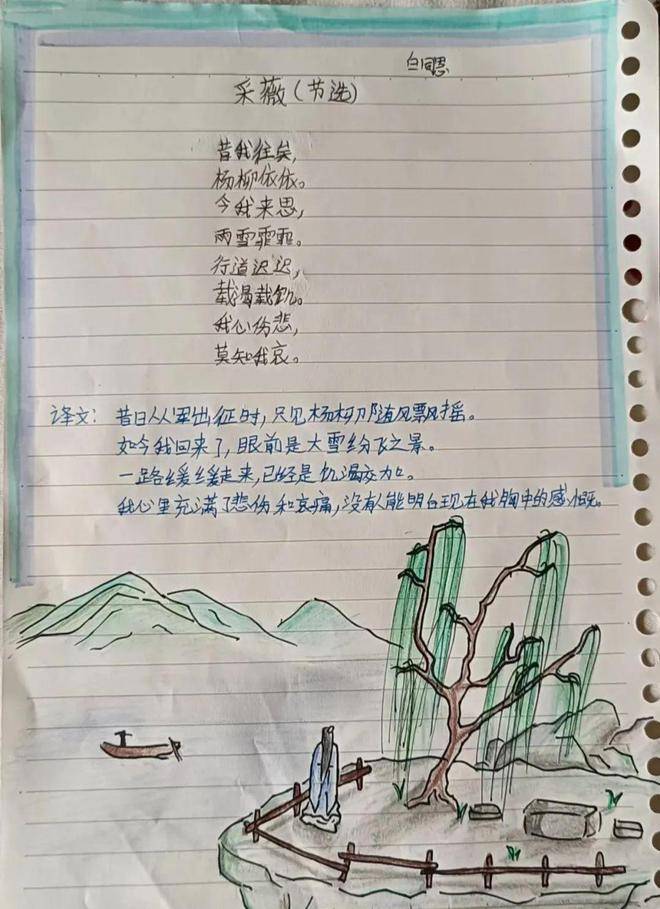 白同恩
采薇（节选）
昔我往矣，
杨柳依依。
今我来思，
雨雪霏霏。
行道迟迟，
载渴载饥。
我心伤悲，
莫知我哀。
译文：昔日从军出征时，只见杨柳那随风飘摇。
如今我回来了，眼前是大雪纷飞之景。
一路缓缓走来，已经是饥渴交加。
我心里充满了悲伤和哀痛，没有人能明白现在我胸中的感慨。